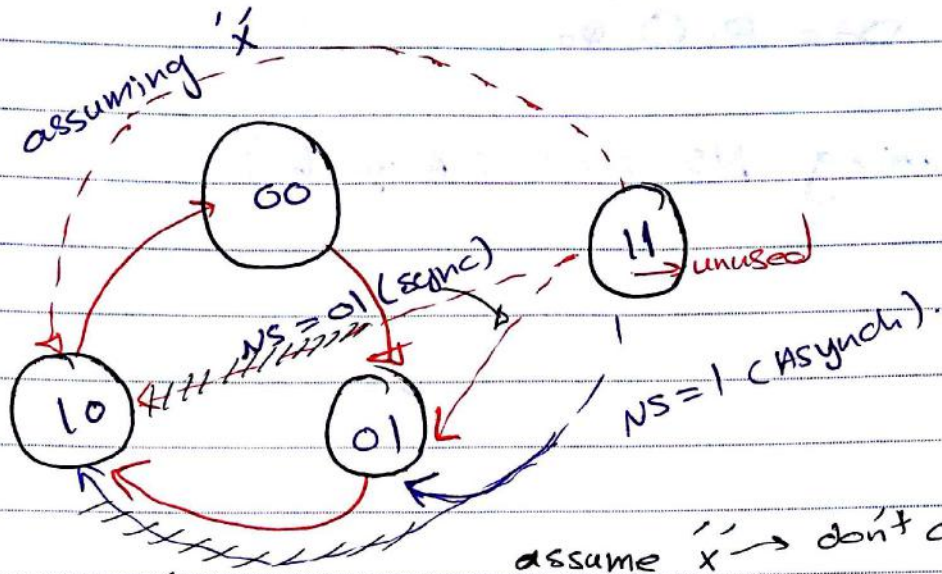 assuming 'x'
00
11
→ unused
NS = 01 (sync)
NS = 1 (Asynch).
10
01
assume 'x' → don't c